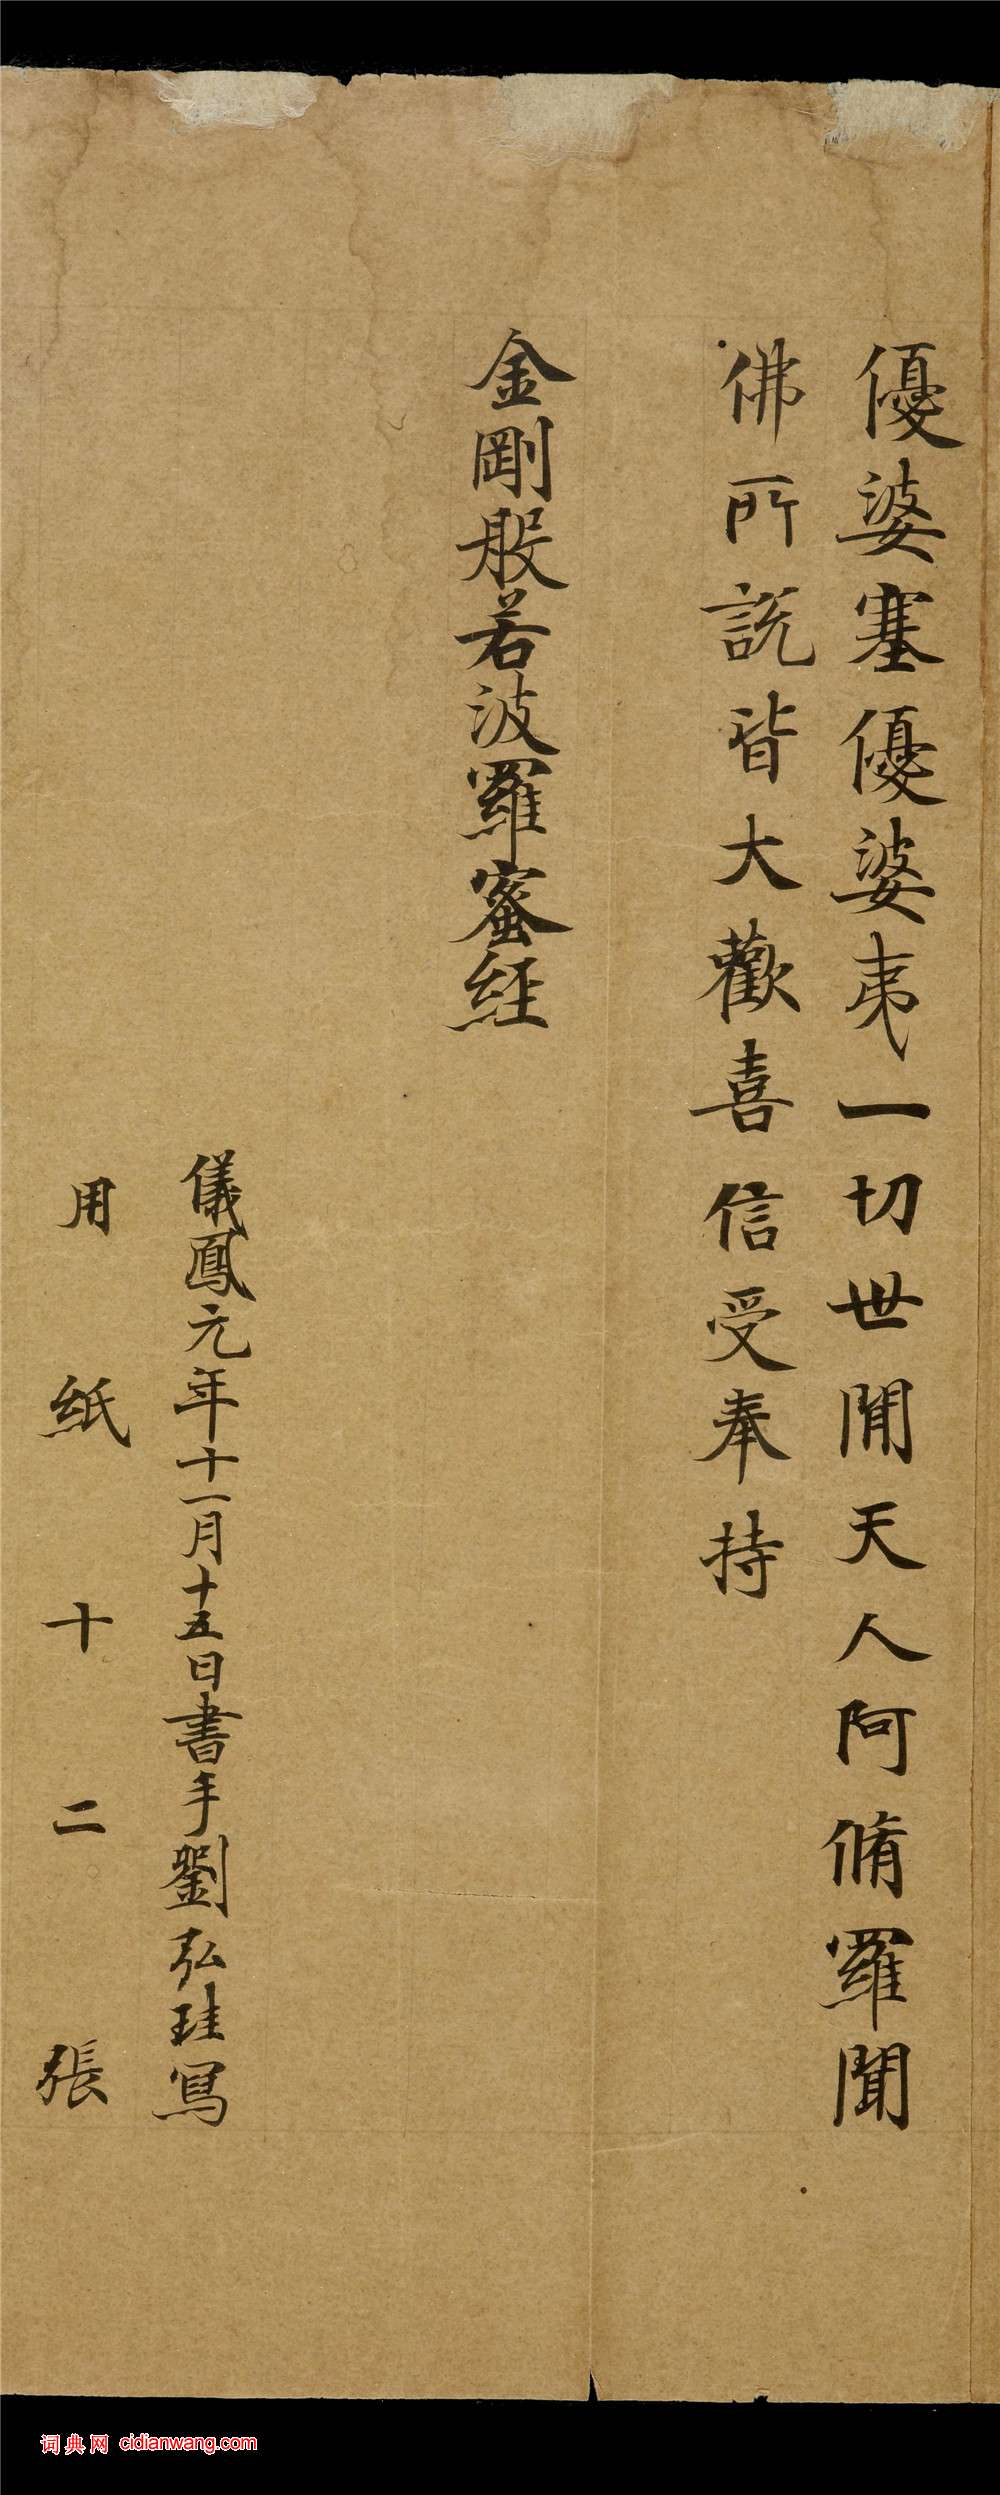 優婆塞優婆夷一切世閒天人阿脩羅聞
佛所説皆大歡喜信受奉持
金剛般若波羅蜜經
儀鳳元年十一月十五日書手劉弘珪寫
用紙十二張
词典网 cidianwang.com